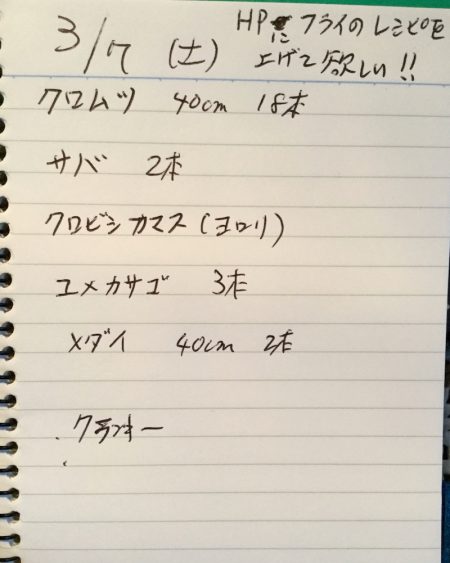 3/7 (土)
HPにフライのレシピを
上げて欲しい!!
クロムツ 40cm 18本
サバ 2本
クロビシカマス(ヨロリ)
ユメカサゴ 3本
メダイ 40cm 2本
・クランキー